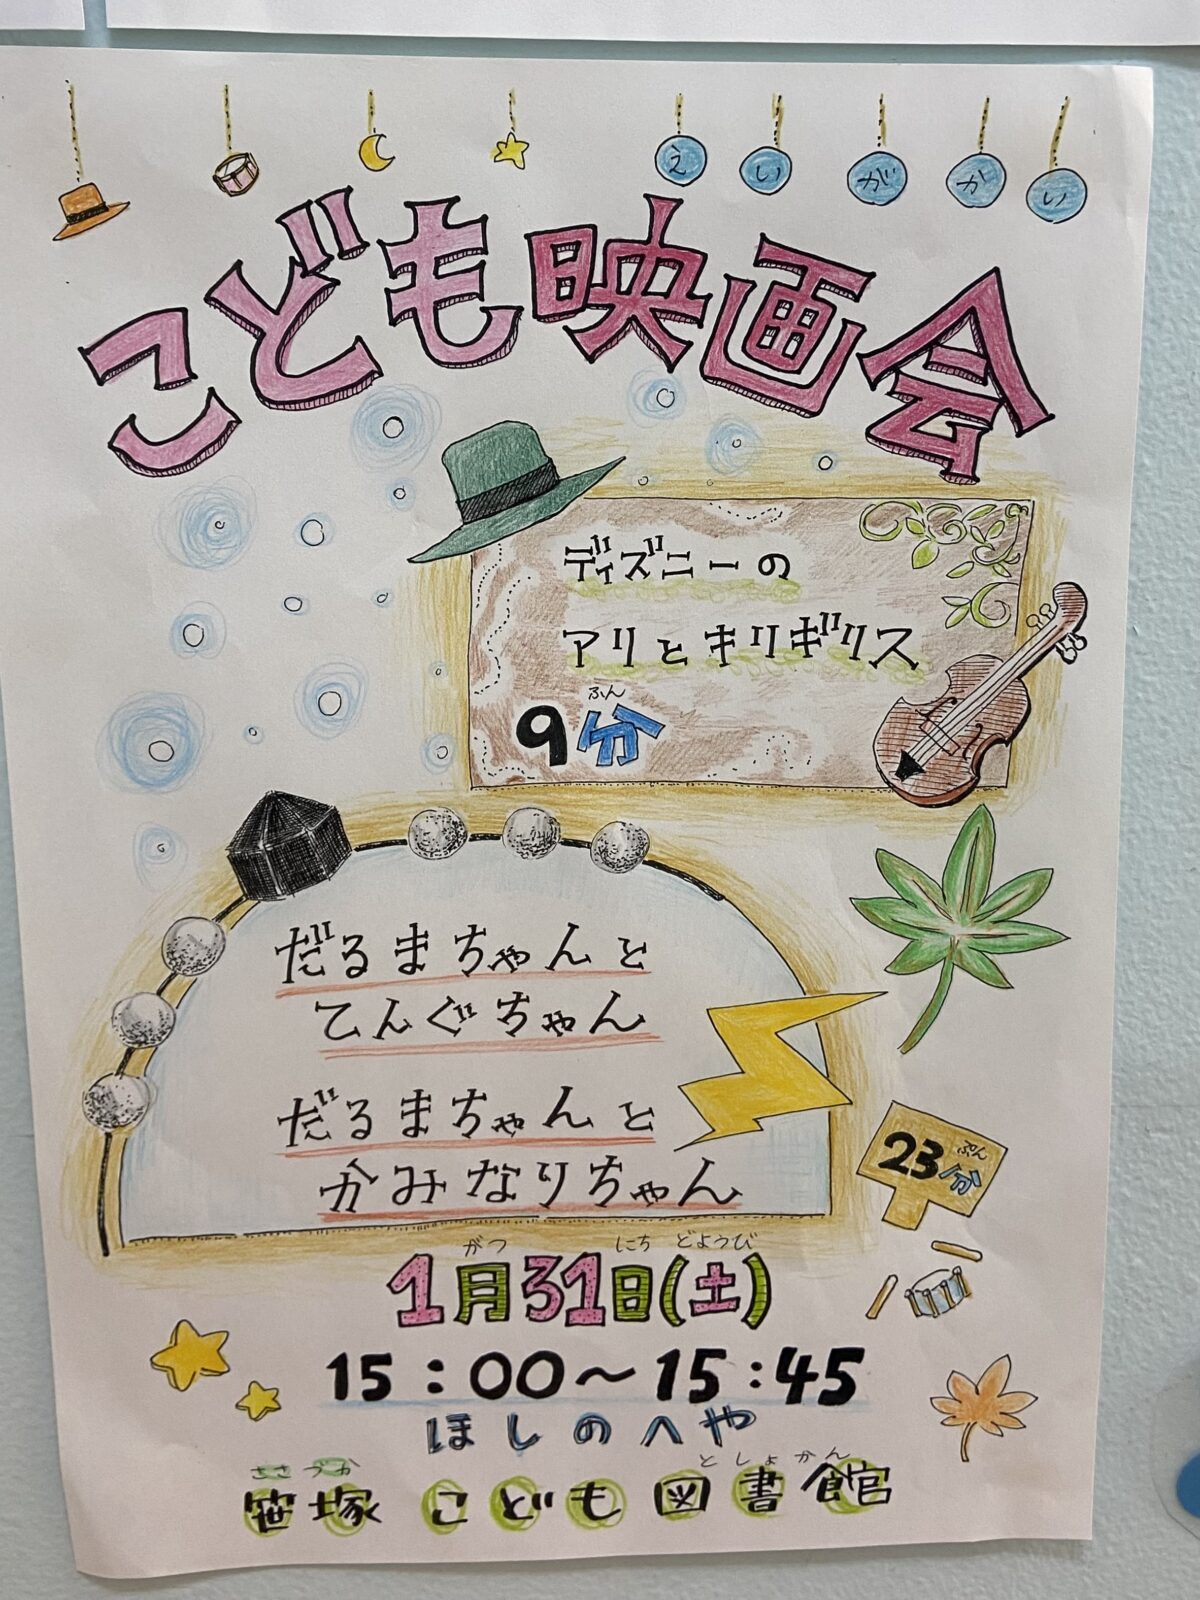 えいがかい
こども映画会
ディズニーの
アリとキリギリス
ふん
9分
だるまちゃんと
てんぐちゃん
だるまちゃんと
かみなりちゃん
ぷん
23分
がつ にち どようび
1月31日(土)
15:00〜15:45
ほしのへや
ささづか としょかん
笹塚 こども 図書館